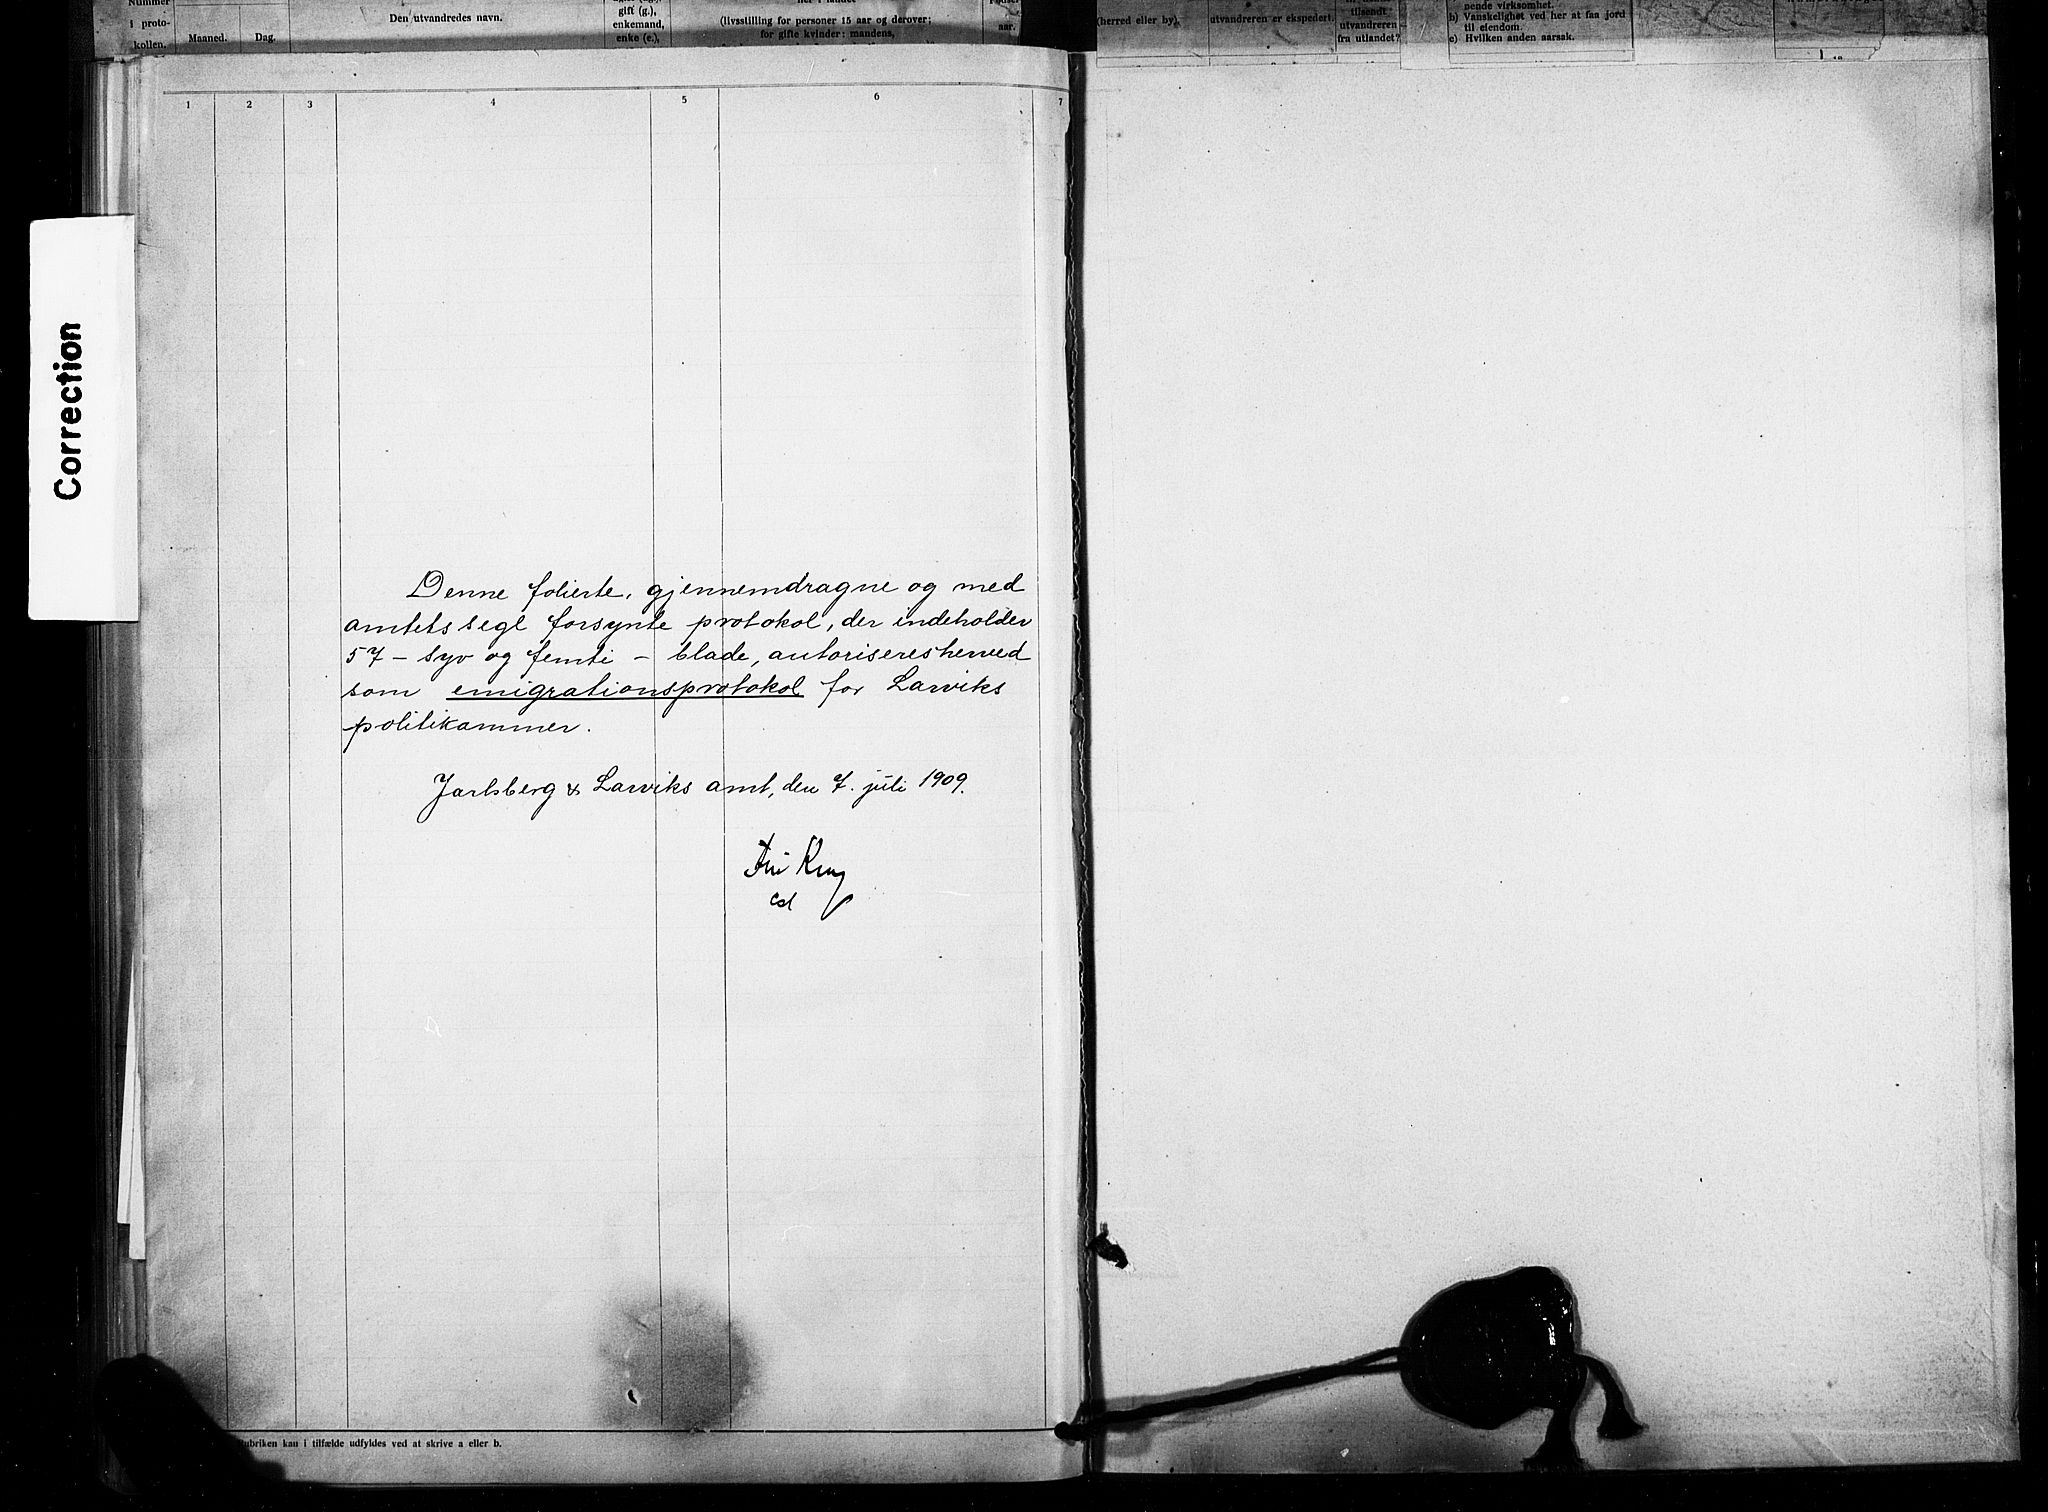 Nummer
i proto-
kollen.
Maaned.
Dag.
Den utvandredes navn.
gift (g.),
enkemand,
enke (e.),
her i landet
(livsstilling for personer 15 aar og derover;
for gifte kvinder: mandens,
aar.
(herred eller by).
utvandreren er ekspedert.
tilsendt
utvandreren
fra utlandet?
nende virksomhet.
b) Vanskelighet ved her at faa jord
til eiendom.
c) Hvilken anden aarsak.
1 2 3 4 5 6 7
Correction
Denne folierte, gjennemdragne og med
amtets segl forsynte protokol, der indeholder
57 - syv og femti - blade, autoriseres herved
som emigrationsprotokol for Larviks
politikammer.
Jarlsberg & Larviks amt, den 7. juli 1909.
rubriken kan i tilfælde udfyldes ved at skrive a eller b.